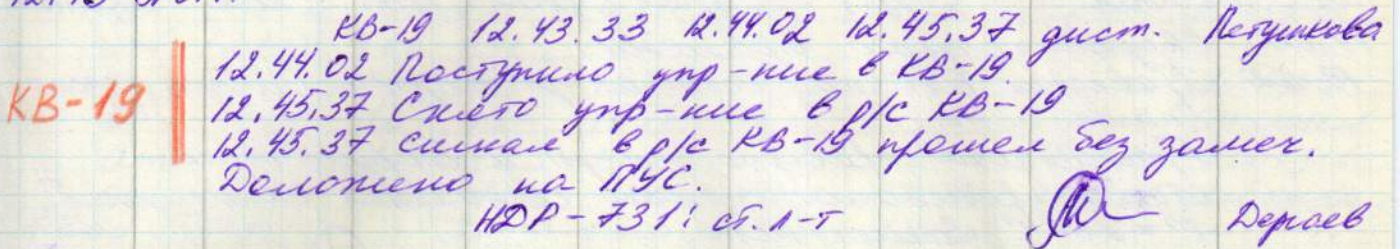 КВ-19 12.43.33 12.44.02 12.45.37 дист. Петушкова
12.44.02 Поступило упр-ние в КВ-19.
КВ-19
12.45.37 Снято упр-ние в р/с КВ-19
12.45.37 сигнал в р/с КВ-19 прошел без замеч.
Доложено на ПУС.
НДР-731: ст. л-т